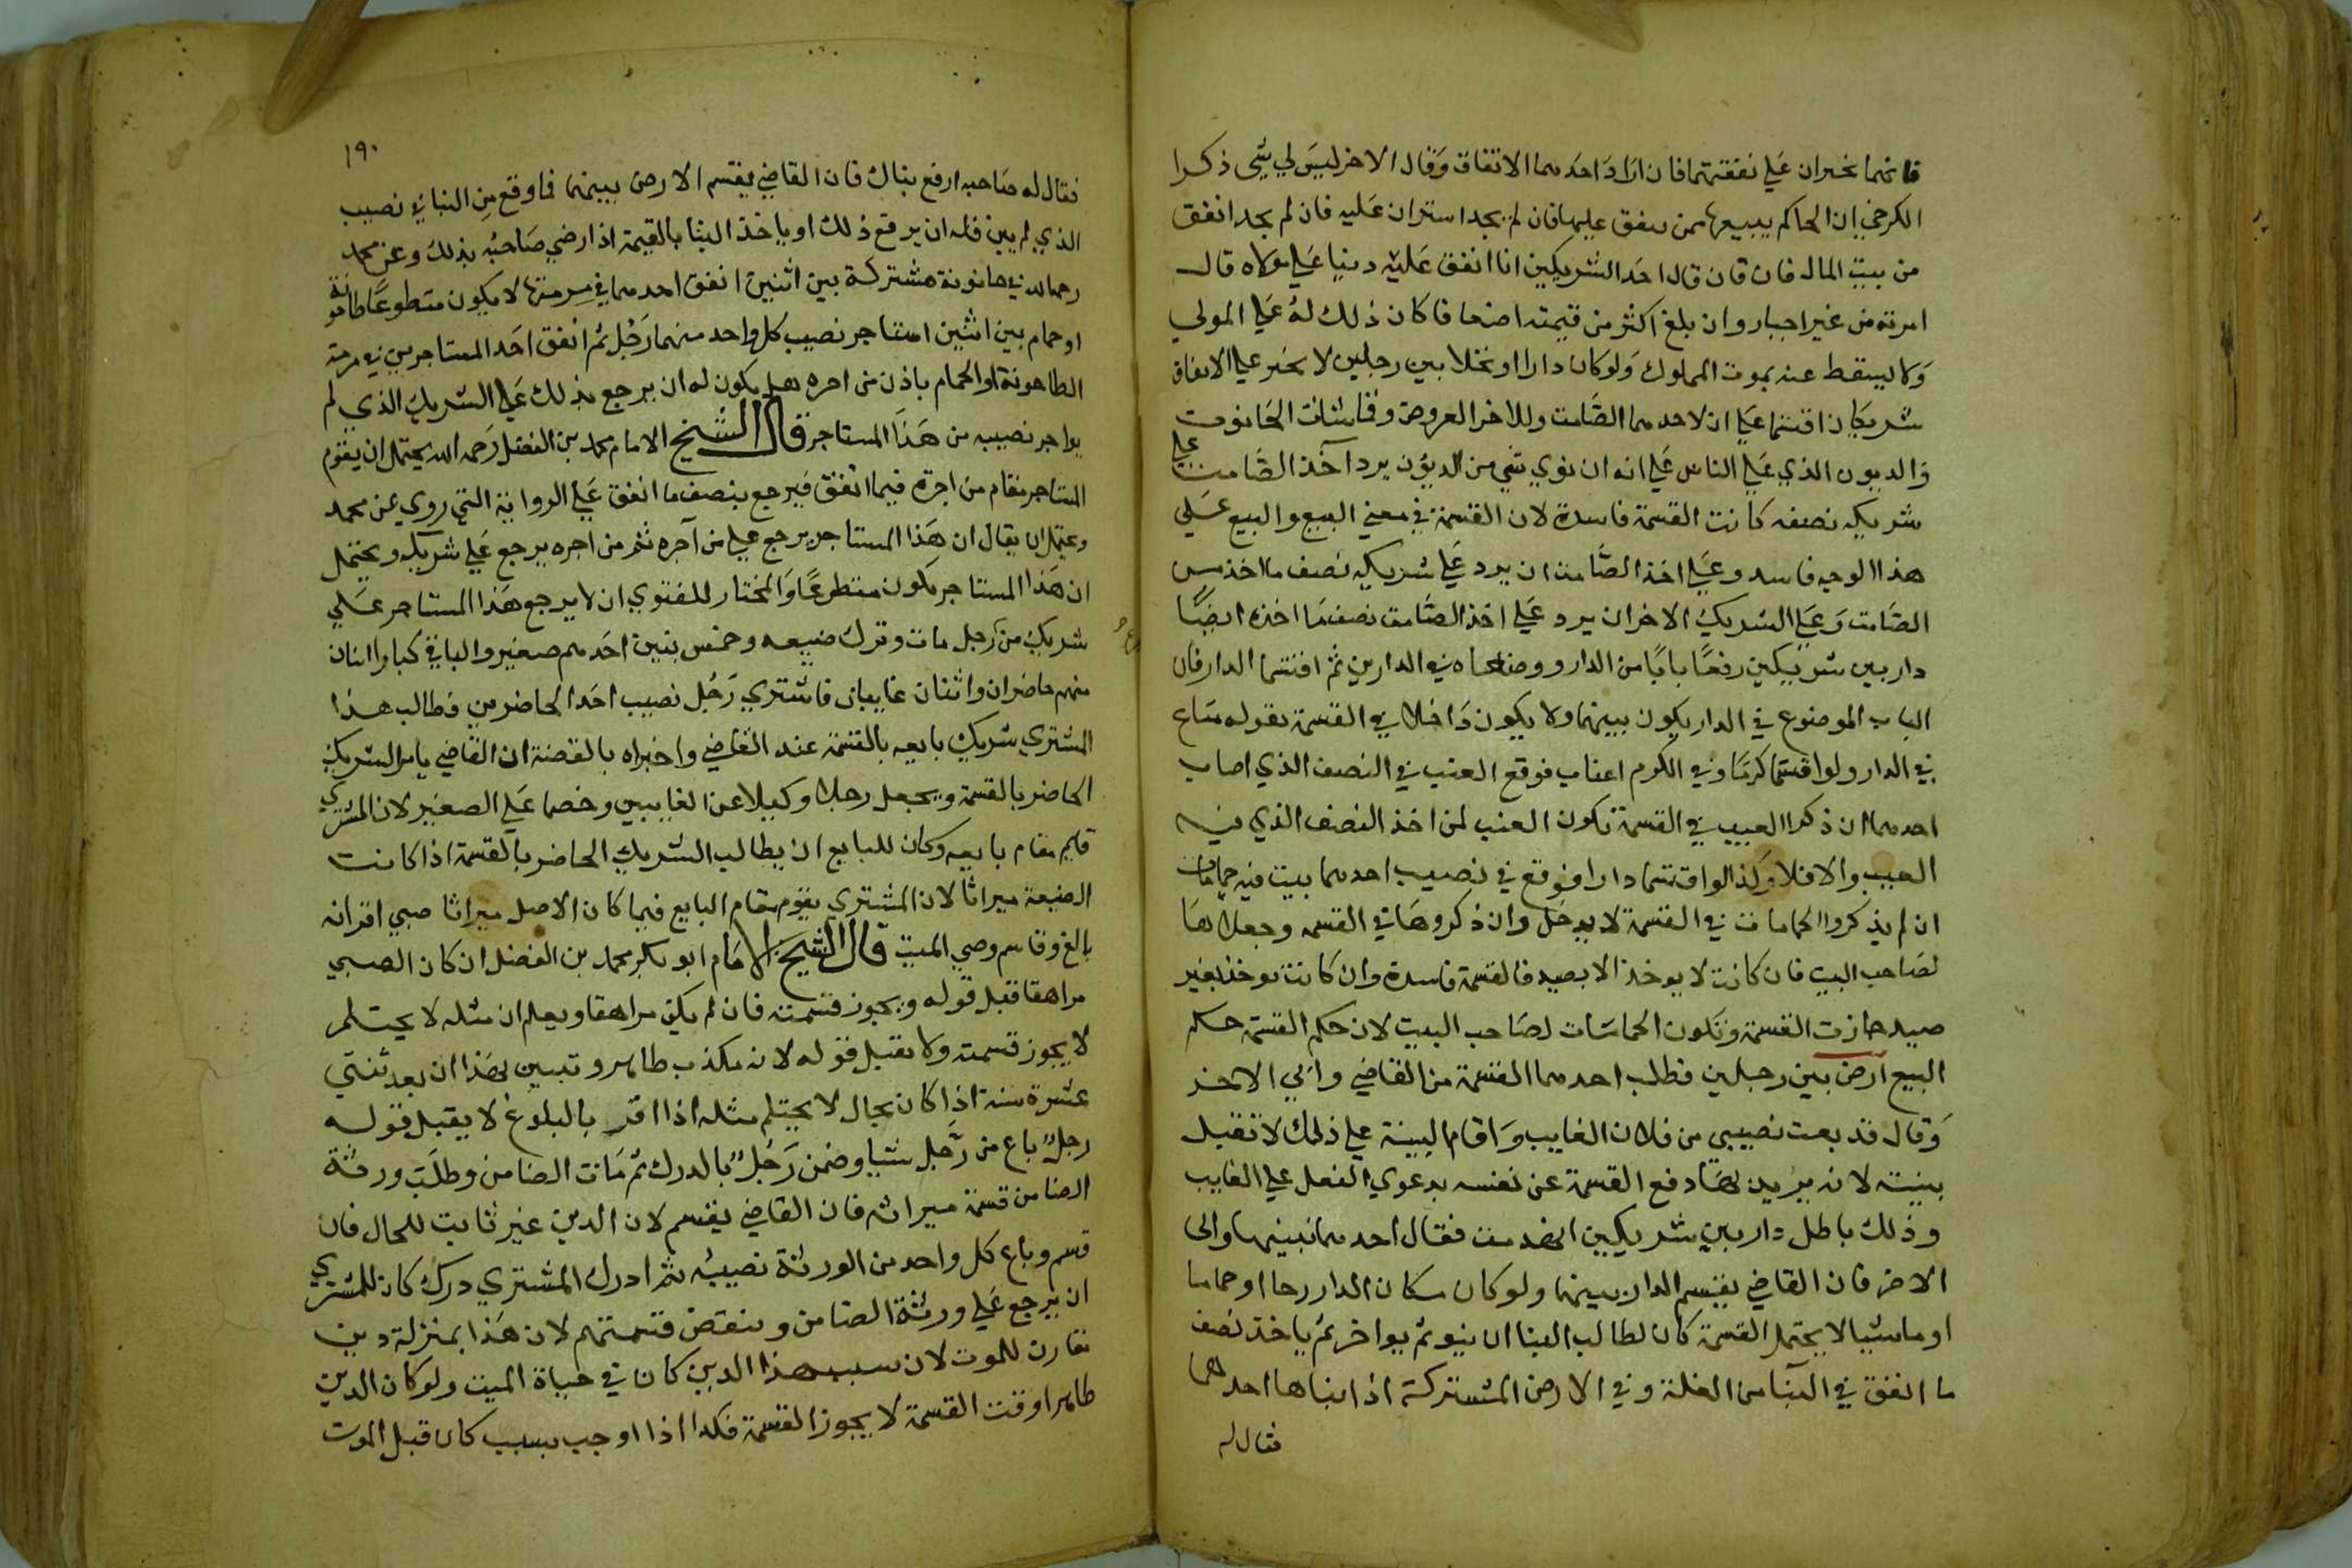 فانهما يجبران علي نفقتهما فان اراد احدهما الانفاق وقال الاخر ليس لي شي ذكرا
الكرخي ان الحاكم يبيعها ممن ينفق عليها فان لم يجد استدان عليه فان لم يجد انفق
من بيت المال فان قال احد الشريكين انا انفق عليه دينا علي مولاه قال
امرته من غير اجبار وان بلغ اكثر من قيمته اضعافا كان ذلك له علي المولي
ولا يسقط عنه بموت المملوك ولو كان دارا او نخلا بين رجلين لا يجبر علي الانفاق
شريكان اقتسما علي ان لاحدهما الصامت وللاخر العروض وقماشات الحانوت
والديون الذي علي الناس علي انه ان نوي شي من الديون يرد آخذ الصامت علي
شريكه نصفه كانت القسمة فاسدة لان القسمة في معني البيع والبيع علي
هذا الوجه فاسد وعلي اخذ الصامت ان يرد علي شريكه نصف ما اخذ من
الصامت وعلي الشريك الاخر ان يرد علي اخذ الصامت نصف ما اخذه ايضا
دار بين شريكين رفعا بابا من الدار ووضعاه في الدارين ثم اقتسما الدار فان
الباب الموضوع في الدار يكون بينهما ولا يكون داخلا في القسمة بقوله متاع
في الدار ولو اقتسما كرما وفي الكرم اعناب فوقع العنب في النصف الذي اصاب
احدهما ان ذكرا العيب في القسمة تكون العنب لمن اخذ النصف الذي فيه
العيب والا فلا وكذا لو اقتسما دارا فوقع في نصيب احدهما بيت فيه حمامات
ان لم يذكروا الحمامات في القسمة لا يدخل وان ذكروها في القسمه وجعلاها
لصاحب البيت فان كانت لا يوخذ الا بصيد فالقسمة فاسدة وان كانت توخذ بغير
صيد جازت القسمة وتكون الحمامات لصاحب البيت لان حكم القسمة حكم
البيع ارض بين رجلين فطلب احدهما القسمة من القاضي وابي الاخر
وقال قد بعت نصيبي من فلان الغايب واقام البينة علي ذلك لا تقبل
بينته لانه يريد بهذا دفع القسمة عن نفسه بدعوي الفعل علي الغايب
وذلك باطل دار بين شريكين انهدمت فقال احدهما نبنيها وابي
الاخر فان القاضي يقسم الدار بينهما ولو كان مكان الدار رحا او حماما
او ما شيا لا يحتمل القسمة كان لطالب البنا ان يبني ثم يواجر ثم ياخذ نصف
ما انفق في البنا من الغلة وفي الارض المشتركة اذا بناها احدهما
فقال له
١٩٠
فقال له صاحبه ارفع بناك فان القاضي يقسم الارض بينهما فما وقع من البنا في نصيب
الذي لم يبن فله ان يرفع ذلك او ياخذ البنا بالقيمة اذا رضي صاحبه بذلك وعن محمد
رحمه الله في حانوته مشتركة بين اثنين انفق احدهما في مرمتها لا يكون متطوعا طاحونة
او حمام بين اثنين استاجر نصيب كل واحد منهما رجل ثم انفق احد المستاجرين في مرمة
الطاحونة او الحمام باذن من اجره هل يكون له ان يرجع بذلك علي الشريك الذي لم
يواجر نصيبه من هذا المستاجر قال الشيخ الامام محمد بن الفضل رحمه الله يحتمل ان يقوم
المستاجر مقام من اجره فيما انفق فيرجع بنصف ما انفق علي الرواية التي روي عن محمد
ويحتمل ان يقال ان هذا المستاجر يرجع علي من آجره ثم من اجره يرجع علي شريكه ويحتمل
ان هذا المستاجر يكون متطوعا والمختار للفتوي ان لا يرجع هذا المستاجر علي
شريك من رجل مات وترك ضيعه وخمس بنين احدهم صغير والباقي كبار اثنان
منهم حاضران واثنان غايبان فاشتري رجل نصيب احد الحاضرين فطالب هذا
المشتري شريك بايعه بالقسمة عند القاضي واخبراه بالقصة ان القاضي يامر الشريك
الحاضر بالقسمة ويجعل رجلا وكيلا عن الغايبين وخصما علي الصغير لان المشتري
قايم مقام بايعه وكان للبايع ان يطالب الشريك الحاضر بالقسمة اذا كانت
الضيعة ميراثا لان المشتري يقوم مقام البايع فيما كان الاصل ميراثا صبي اقر انه
بالغ وقاسم وصي الميت قال الشيخ الامام ابو بكر محمد بن الفضل ان كان الصبي
مراهقا فقبل قوله ويجوز قسمته فان لم يكن مراهقا ويعلم ان مثله لا يحتلم
لا يجوز قسمته ولا يقبل قوله لانه مكذب ظاهر وتبين بهذا ان بعد ثنتي
عشرة سنة اذا كان بحال لا يحتلم مثله اذا اقر بالبلوغ لا يقبل قوله
رجل باع من رجل شيا وضمن رجل بالدرك ثم مات الضامن وطلب ورثة
الضامن قسمة ميراثه فان القاضي يقسم لان الدين غير ثابت للحال فان
قسم وباع كل واحد من الورثة نصيبه ثم ادرك المشتري درك كان للمشتري
ان يرجع علي ورثة الضامن وينقض قسمتهم لان هذا بمنزلة دين
تقارن للموت لان سبب هذا الدين كان في حياة الميت ولو كان الدين
ظاهرا وقت القسمة لا يجوز القسمة فكذا اذا اوجب بسبب كان قبل الموت